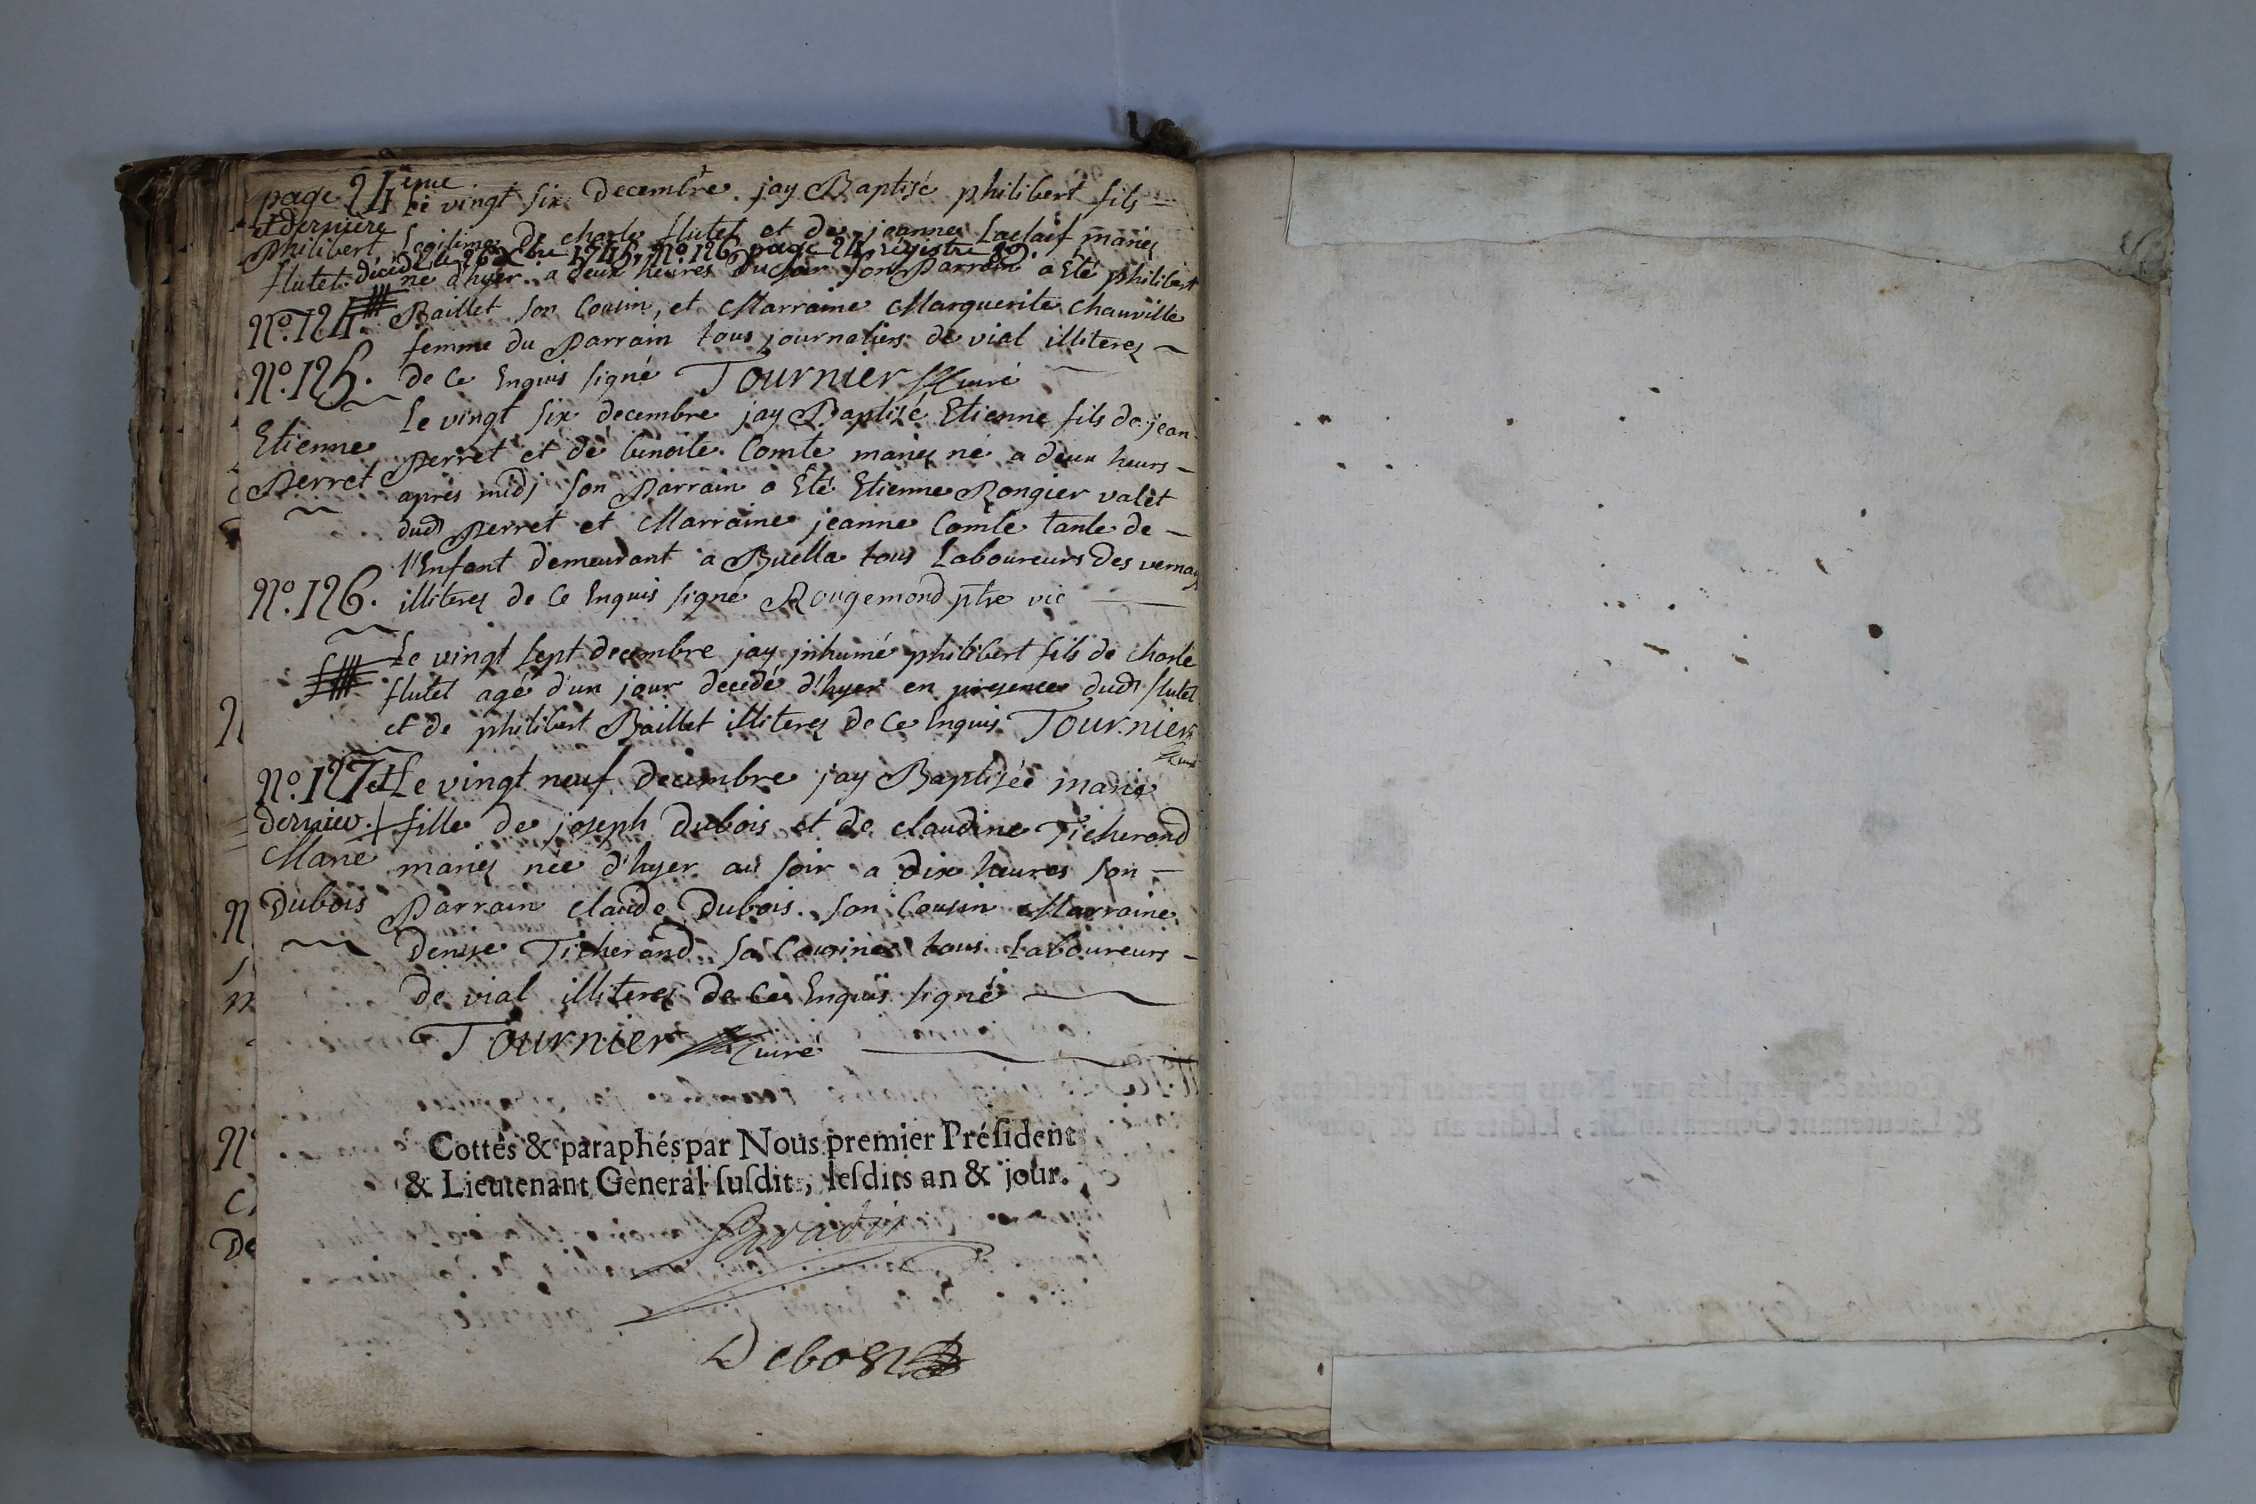 page 24 ème
et dernière
Le vingt six decembre jay Baptisé philibert fils
Philibert
flutet
Legitime de charle flutet et de jeanne Laclaif mariés
décédé le 26 Xbre N°. 126 page 24 registre
né d'hyer a deux heures du soir son Parrain a Eté philibert
N°. 124.
Baillet son Cousin, et Marraine Marguerite Chauville
femme du Parrain tous journaliers de vial illiterez
N°. 125.
de ce Enquis signé Tournier Curé
Le vingt six decembre jay Baptisé Etienne fils de jean
Etienne
Perret
Perret et de benoite Comte mariez né a deux heurs
après midj son Parrain a Eté Etienne Rongier valet
dud Perret et Marraine jeanne Comte tante de
l'Enfant demeurant a Buella tous Laboureurs des vernays
N°. 126.
illiterez de ce Enquis signé Rougemond ptre vic
Le vingt sept decembre jay jnhumé philibert fils de charle
flutet agé d'un jour decedé d'hyer en presence dud flutet
et de philibert Baillet illiterez de ce Enquis Tournier
Curé
N°. 127 et
dernier.
Le vingt neuf decembre jay Baptisée marie
fille de joseph Dubois et de claudine Ticherand
Marie
Dubois
mariez née d'hyer au soir a dix heures son
Parrain claude Dubois son Cousin Marraine
Denise Ticherand sa Cousine tous Laboureurs
de vial illiterez de ce Enquis signé
Tournier Curé
Cottés & paraphés par Nous premier Préſident
& Lieutenant Géneral ſuſdit, leſdits an & jour.